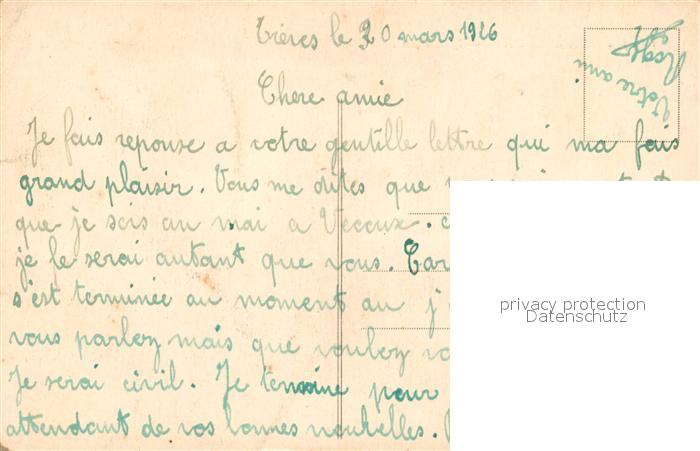 Trèves le 20 mars 1926
Chere amie
Je fais reponse a votre gentille lettre qui ma fais
grand plaisir. Vous me dites que
que je sois au mai a Vecoux.
je le serai autant que vous. Car
s'est terminée au moment au j'
vous parlez mais que voulez
Je serai civil. Je termine pour
attendant de vos bonnes nouvelles.
Votre ami
privacy protection
Datenschutz